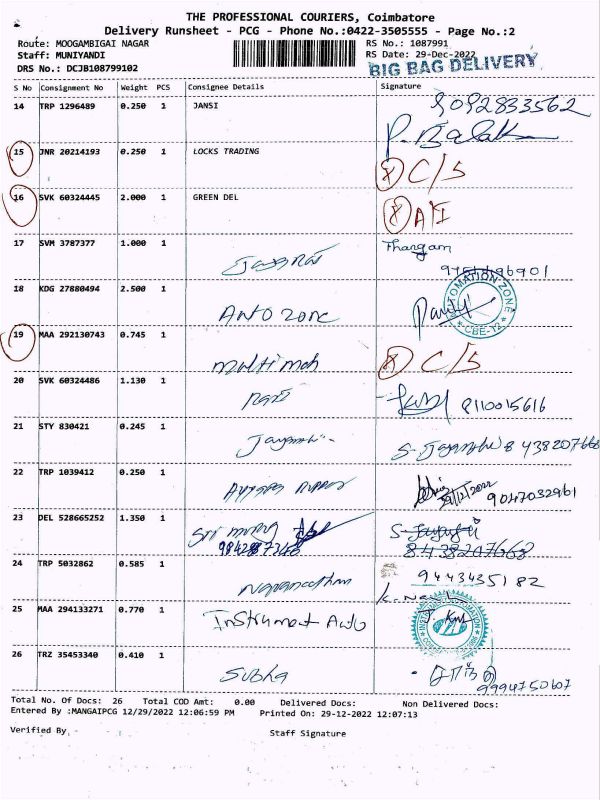 THE PROFESSIONAL COURIERS, Coimbatore
Delivery Runsheet - PCG - Phone No.:0422-3505555 - Page No.:2
Route: MOOGAMBIGAI NAGAR RS No.: 1087991
Staff: MUNIYANDI RS Date: 29-Dec-2022
DRS No.: DCJB108799102 BIG BAG DELIVERY
S No Consignment No Weight PCS Consignee Details Signature
14 TRP 1296489 0.250 1 JANSI 9092833562
15 JNR 20214193 0.250 1 LOCKS TRADING C/S
16 SVK 60324445 2.000 1 GREEN DEL
17 SVM 3787377 1.000 1 Thangam
18 KDG 27880494 2.500 1 Auto zone AUTOMATION ZONE CBE-12
19 MAA 292130743 0.745 1 C/S
20 SVK 60324486 1.130 1 8110015616
21 STY 830421 0.245 1 8438207668
22 TRP 1039412 0.250 1 29/12/2022 9047032961
23 DEL 528665252 1.350 1 8438207668
24 TRP 5032862 0.585 1 9443435182
25 MAA 294133271 0.770 1 Instrument Auto
26 TRZ 35453340 0.410 1 Subha 9994750607
Total No. Of Docs: 26 Total COD Amt: 0.00 Delivered Docs: Non Delivered Docs:
Entered By :MANGAIPCG 12/29/2022 12:06:59 PM Printed On: 29-12-2022 12:07:13
Verified By Staff Signature